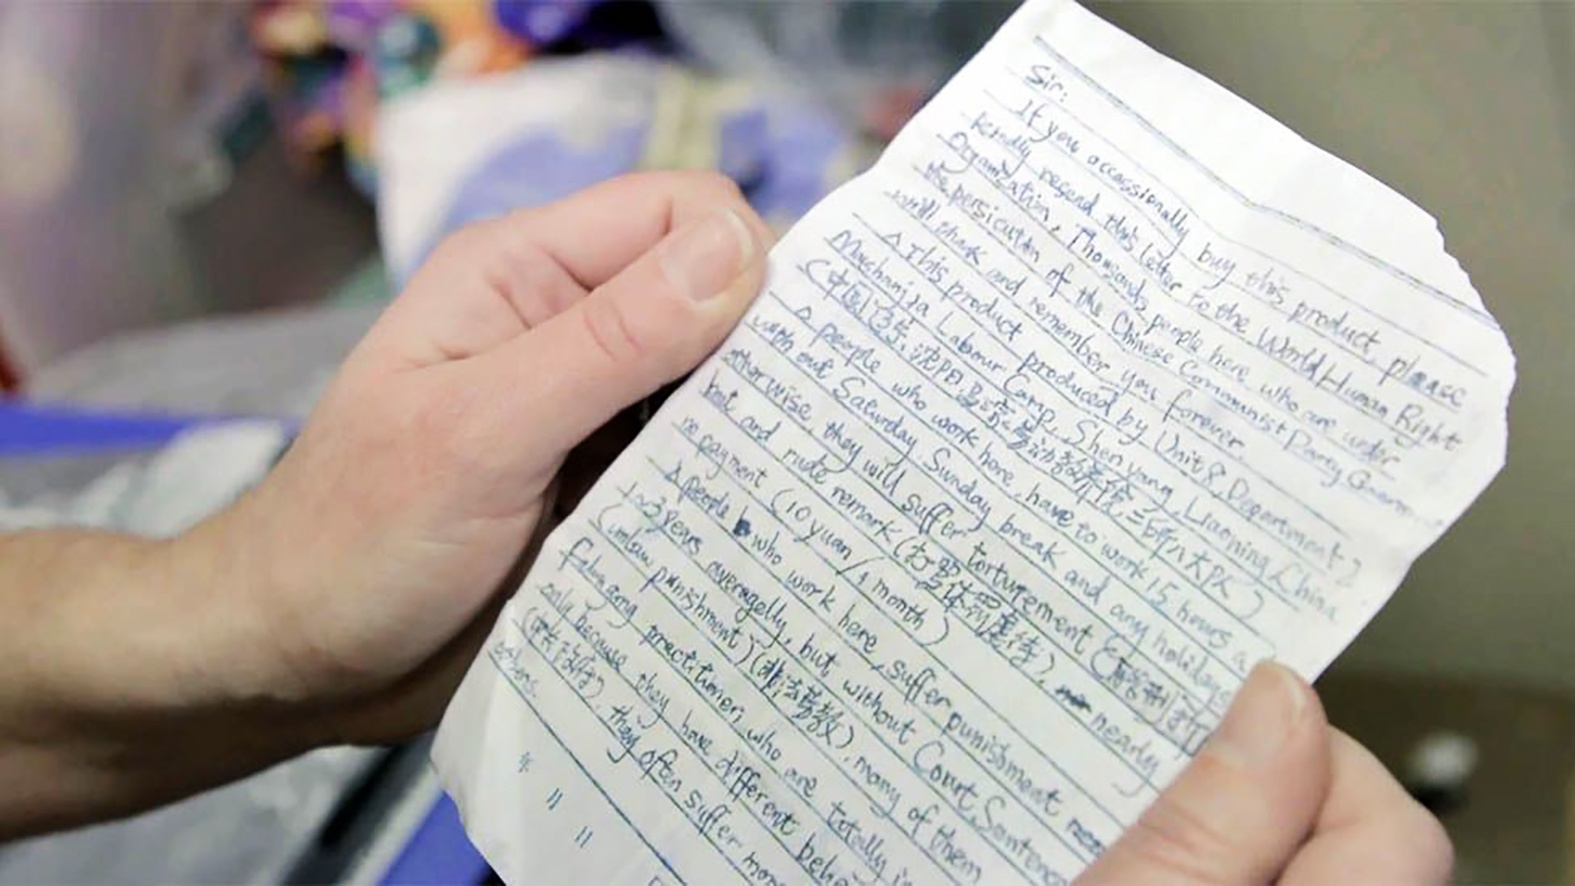 Sir:
If you occassionally buy this product, please
kindly resend this letter to the World Human Right
Organization. Thousands people here who are under
the persicution of the Chinese Communist Party
will thank and remember you forever.
△ This product produced by Unit 8, Department 2
Mashanjia Labour Camp, Shenyang, Liaoning, China
(中国,辽宁,沈阳,马三家劳动教养院二所八大队)
△ people who work here, have to work 15 hours a
with out Saturday, Sunday break and any holidays
otherwise, they will suffer torturement
beat and rude remark (打骂体罚虐待), nearly
no payment (10 yuan / 1 month)
△ people who work here, suffer punishment
1~3 years averagelly, but without Court Sentence
(unlaw punishment) (非法劳教), many of them
Falun gong practitioner, who are totally
only because they have different
they often suffer more
others.